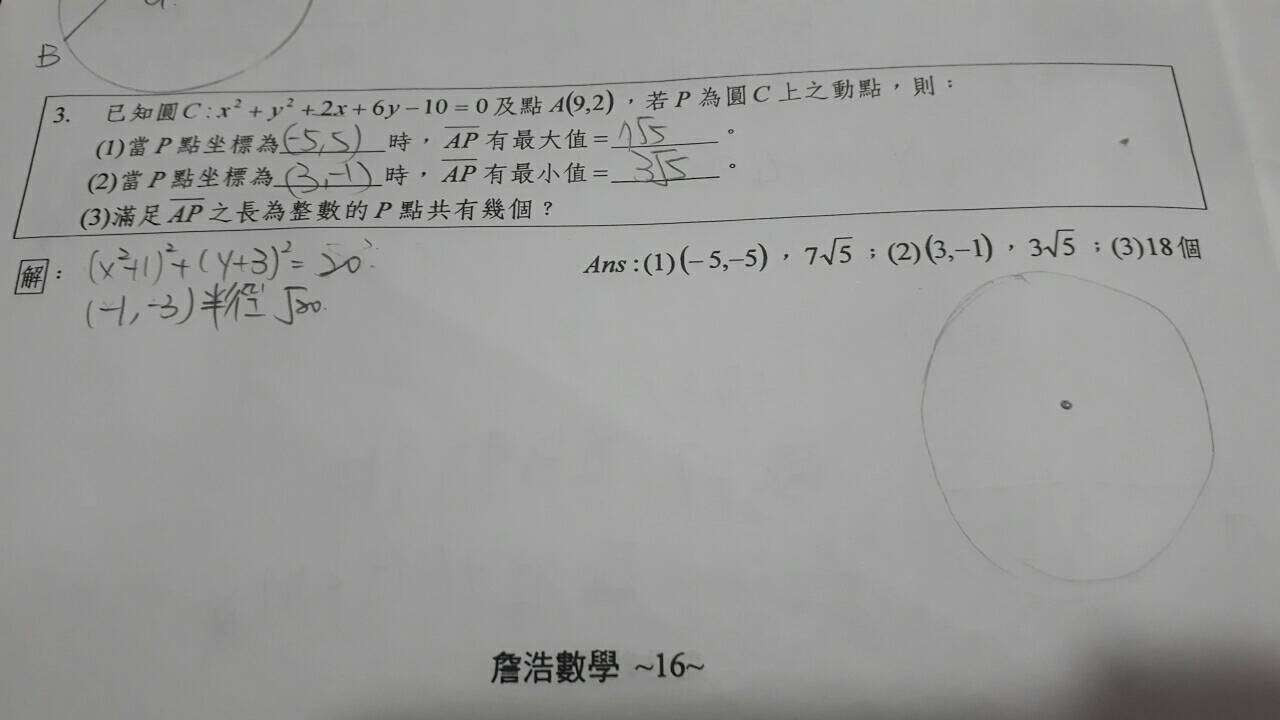 a
B
3. 已知圓 C : x² + y² + 2x + 6y − 10 = 0 及點 A(9,2)，若 P 為圓 C 上之動點，則：
(1)當 P 點坐標為(-5,5)時，AP 有最大值=7√5。
(2)當 P 點坐標為(3,-1)時，AP 有最小值=3√5。
(3)滿足 AP 之長為整數的 P 點共有幾個？
解： (x²+1)²+(y+3)²=20
Ans : (1) (−5,−5)，7√5；(2) (3,−1)，3√5；(3)18個
(-1,-3)半徑√20.
詹浩數學 ~16~